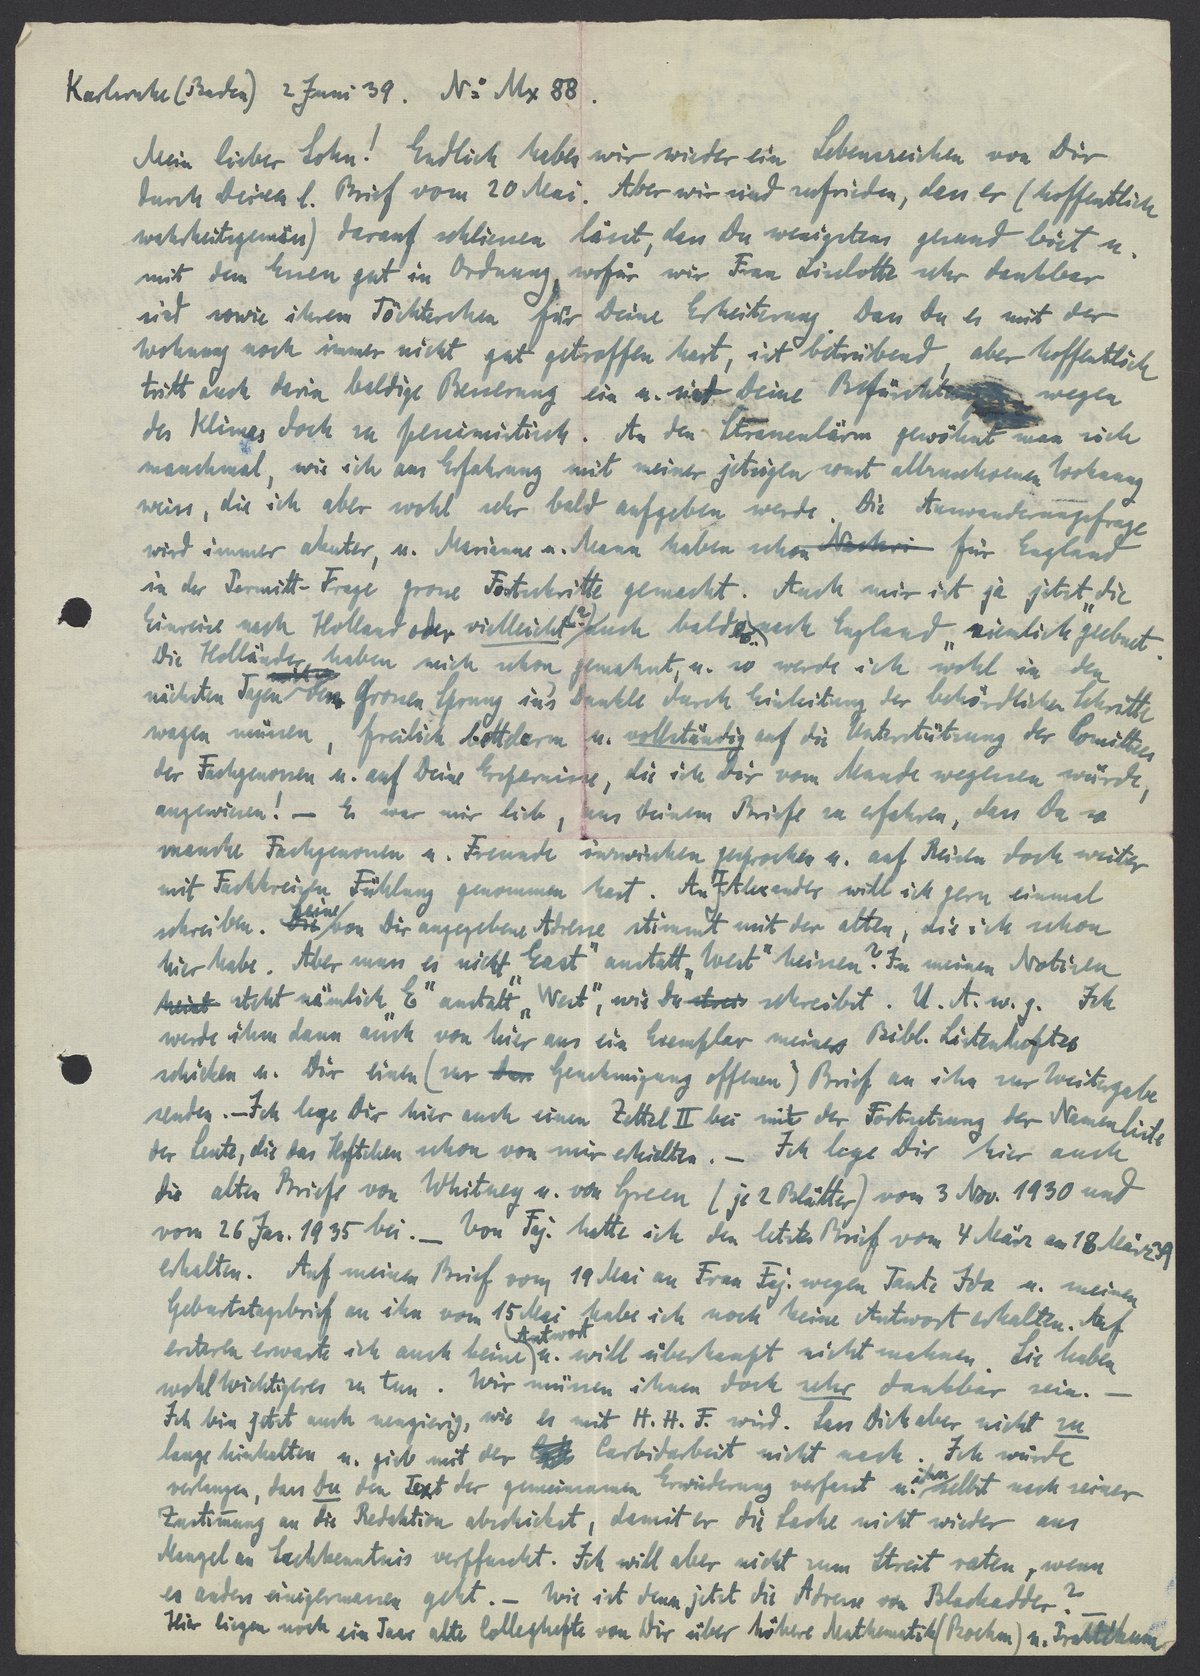 Karlsruhe (Baden) 2 Juni 39. No Mx 88.
Mein lieber Sohn! Endlich haben wir wieder ein Lebenszeichen von Dir
durch Deinen l. Brief vom 20 Mai. Aber wir sind zufrieden, dass er (hoffentlich
wahrheitsgemäss) darauf schliessen lässt, dass Du wenigstens gesund bist u.
mit dem Essen gut in Ordnung, wofür wir Frau Liselotte sehr dankbar
sind sowie ihrem Töchterchen für Deine Erheiterung. Dass Du es mit der
Wohnung noch immer nicht gut getroffen hast, ist betrübend, aber hoffentlich
tritt auch darin baldige Besserung ein u. sind Deine Befürchtungen wegen
des Klimas doch zu pessimistisch. An den Strassenlärm gewöhnt man sich
manchmal, wie ich aus Erfahrung mit meiner jetzigen sonst allzuschoenen Wohnung
weiss, die ich aber wohl sehr bald aufgeben werde. Die Auswanderungsfrage
wird immer akuter, u. Marianne u. Mann haben schon für England
in der Permitt-Frage grosse Fortschritte gemacht. Auch mir ist ja jetzt die
Einreise nach Holland oder vielleicht (?) auch bald nach England „ziemlich" geebnet.
Die Holländer haben mich schon gemahnt, u. so werde ich wohl in den
nächsten Tagen den Grossen Sprung ins Dunkle durch Einleitung der behördlichen Schritte
wagen müssen, freilich bettelarm u. vollständig auf die Unterstützung der Comittees
der Fachgenossen u. auf Deine Ersparnisse, die ich Dir vom Munde wegessen würde,
angewiesen! — Es war mir lieb, aus Deinem Briefe zu erfahren, dass Du so
manche Fachgenossen u. Freunde inzwischen gesprochen u. auf Reisen doch weiter
mit Fachkreisen Fühlung genommen hast. An J. Alexander will ich gern einmal
schreiben. Seine von Dir angegebene Adresse stimmt mit der alten, die ich schon
hier habe. Aber muss es nicht „East" anstatt „West" heissen? In meinen Notizen
steht nämlich „E" anstatt „West", wie Du schreibst. U. A. w. g. Ich
werde ihm dann auch von hier aus ein Exemplar meines Bibl. Listenheftes
schicken u. Dir einen (zur Genehmigung offenen) Brief an ihn zur Weitergabe
senden. — Ich lege Dir hier auch einen Zettel II bei mit der Fortsetzung der Namenliste
der Leute, die das Heftchen schon von mir erhielten. — Ich lege Dir hier auch
die alten Briefe von Whitney u. von Green (je 2 Blätter) vom 3 Nov. 1930 und
vom 26 Jan. 1935 bei. — Von Faj. hatte ich den letzten Brief vom 4 März am 18 März 39
erhalten. Auf meinen Brief vom 19 Mai an Frau Faj. wegen Tante Ida u. meinen
Geburtstagsbrief an ihn vom 15 Mai habe ich noch keine Antwort erhalten. Auf
ersteren erwarte ich auch keine Antwort u. will überhaupt nicht mahnen. Sie haben
wohl Wichtigeres zu tun. Wir müssen ihnen doch sehr dankbar sein. —
Ich bin jetzt auch neugierig, wie es mit H. H. F. wird. Lass Dich aber nicht zu
lange hinhalten u. gieb mit der Carbidarbeit nicht nach. Ich würde
verlangen, dass Du den Text der gemeinsamen Erwiderung verfasst u. ihn selbst nach seiner
Zustimmung an die Redaktion abschickst, damit er die Sache nicht wieder aus
Mangel an Sachkenntnis verpfuscht. Ich will aber nicht zum Streit raten, wenn
es anders einigermassen geht. — Wie ist denn jetzt die Adresse von Blackadder? —
Hier liegen noch ein Paar alte Colleghefte von Dir über höhere Mathematik (Boehm) u. Praktikum